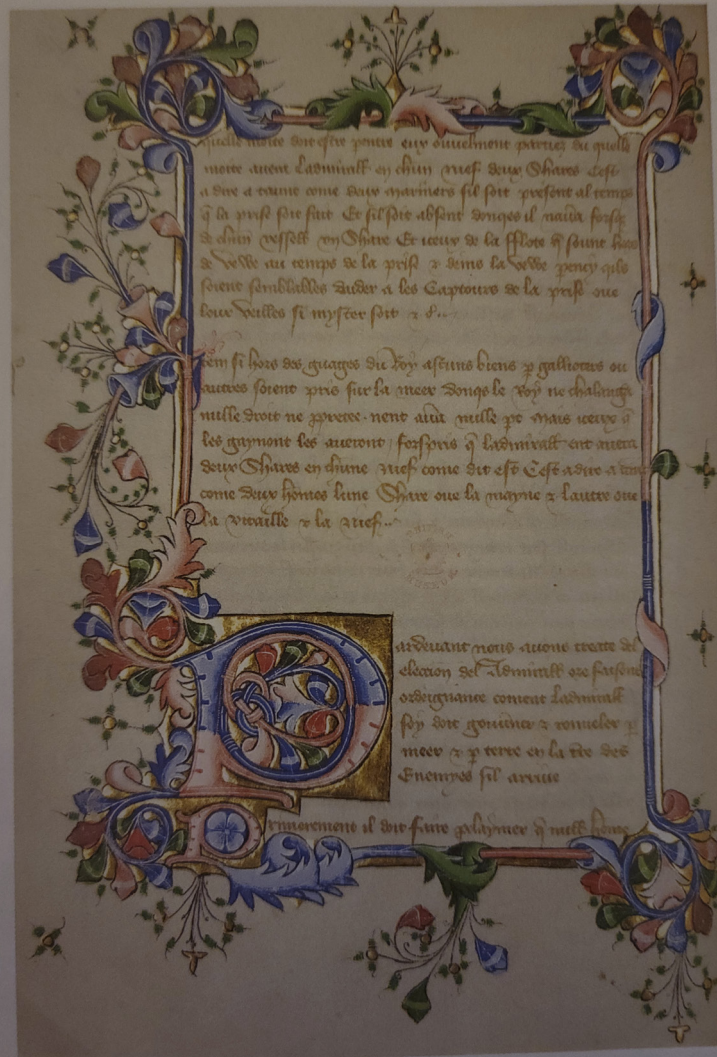 quelle moite doit estre pentre eux ouuelment partiez du quelle
moite auera ladmirall en chun nief deux Shares Cest
a dire a taunt come deux mariners sil soit present al temps
q̃ la prise soit fait Et sil soit absent donqes il nauera forsq̃
de chun vessell vn Share Et iceux de la fflote q̃ sount hors
de vewe au temps de la prise & deins la vewe
soient semblables daider a les Captours de la prise oue
leur veilles si myster soit & c̃..
Item si hors des guages du Roy ascuns biens p galliotes ou
autres soient pris sur la meer donqs le Roy ne chalenga
nulle droit ne nulle Mais iceux q̃
les gaynont les aueront forspris q̃ ladmirall ent auera
deux Shares en chune nief come dit est Cest adire a tant
come deux hõmes lune Share oue la mayne & lautre oue
la vitaille & la nief..
Pardeuant nous auons treate del
eleccion del Admirall ore faisons
ordeignance coment ladmirall
soy doit gouũner & conueler p
meer & p terre en la des
Enemyes sil arriue
Primerement il doit faire q̃ null hõme
BRITISH
MUSEUM